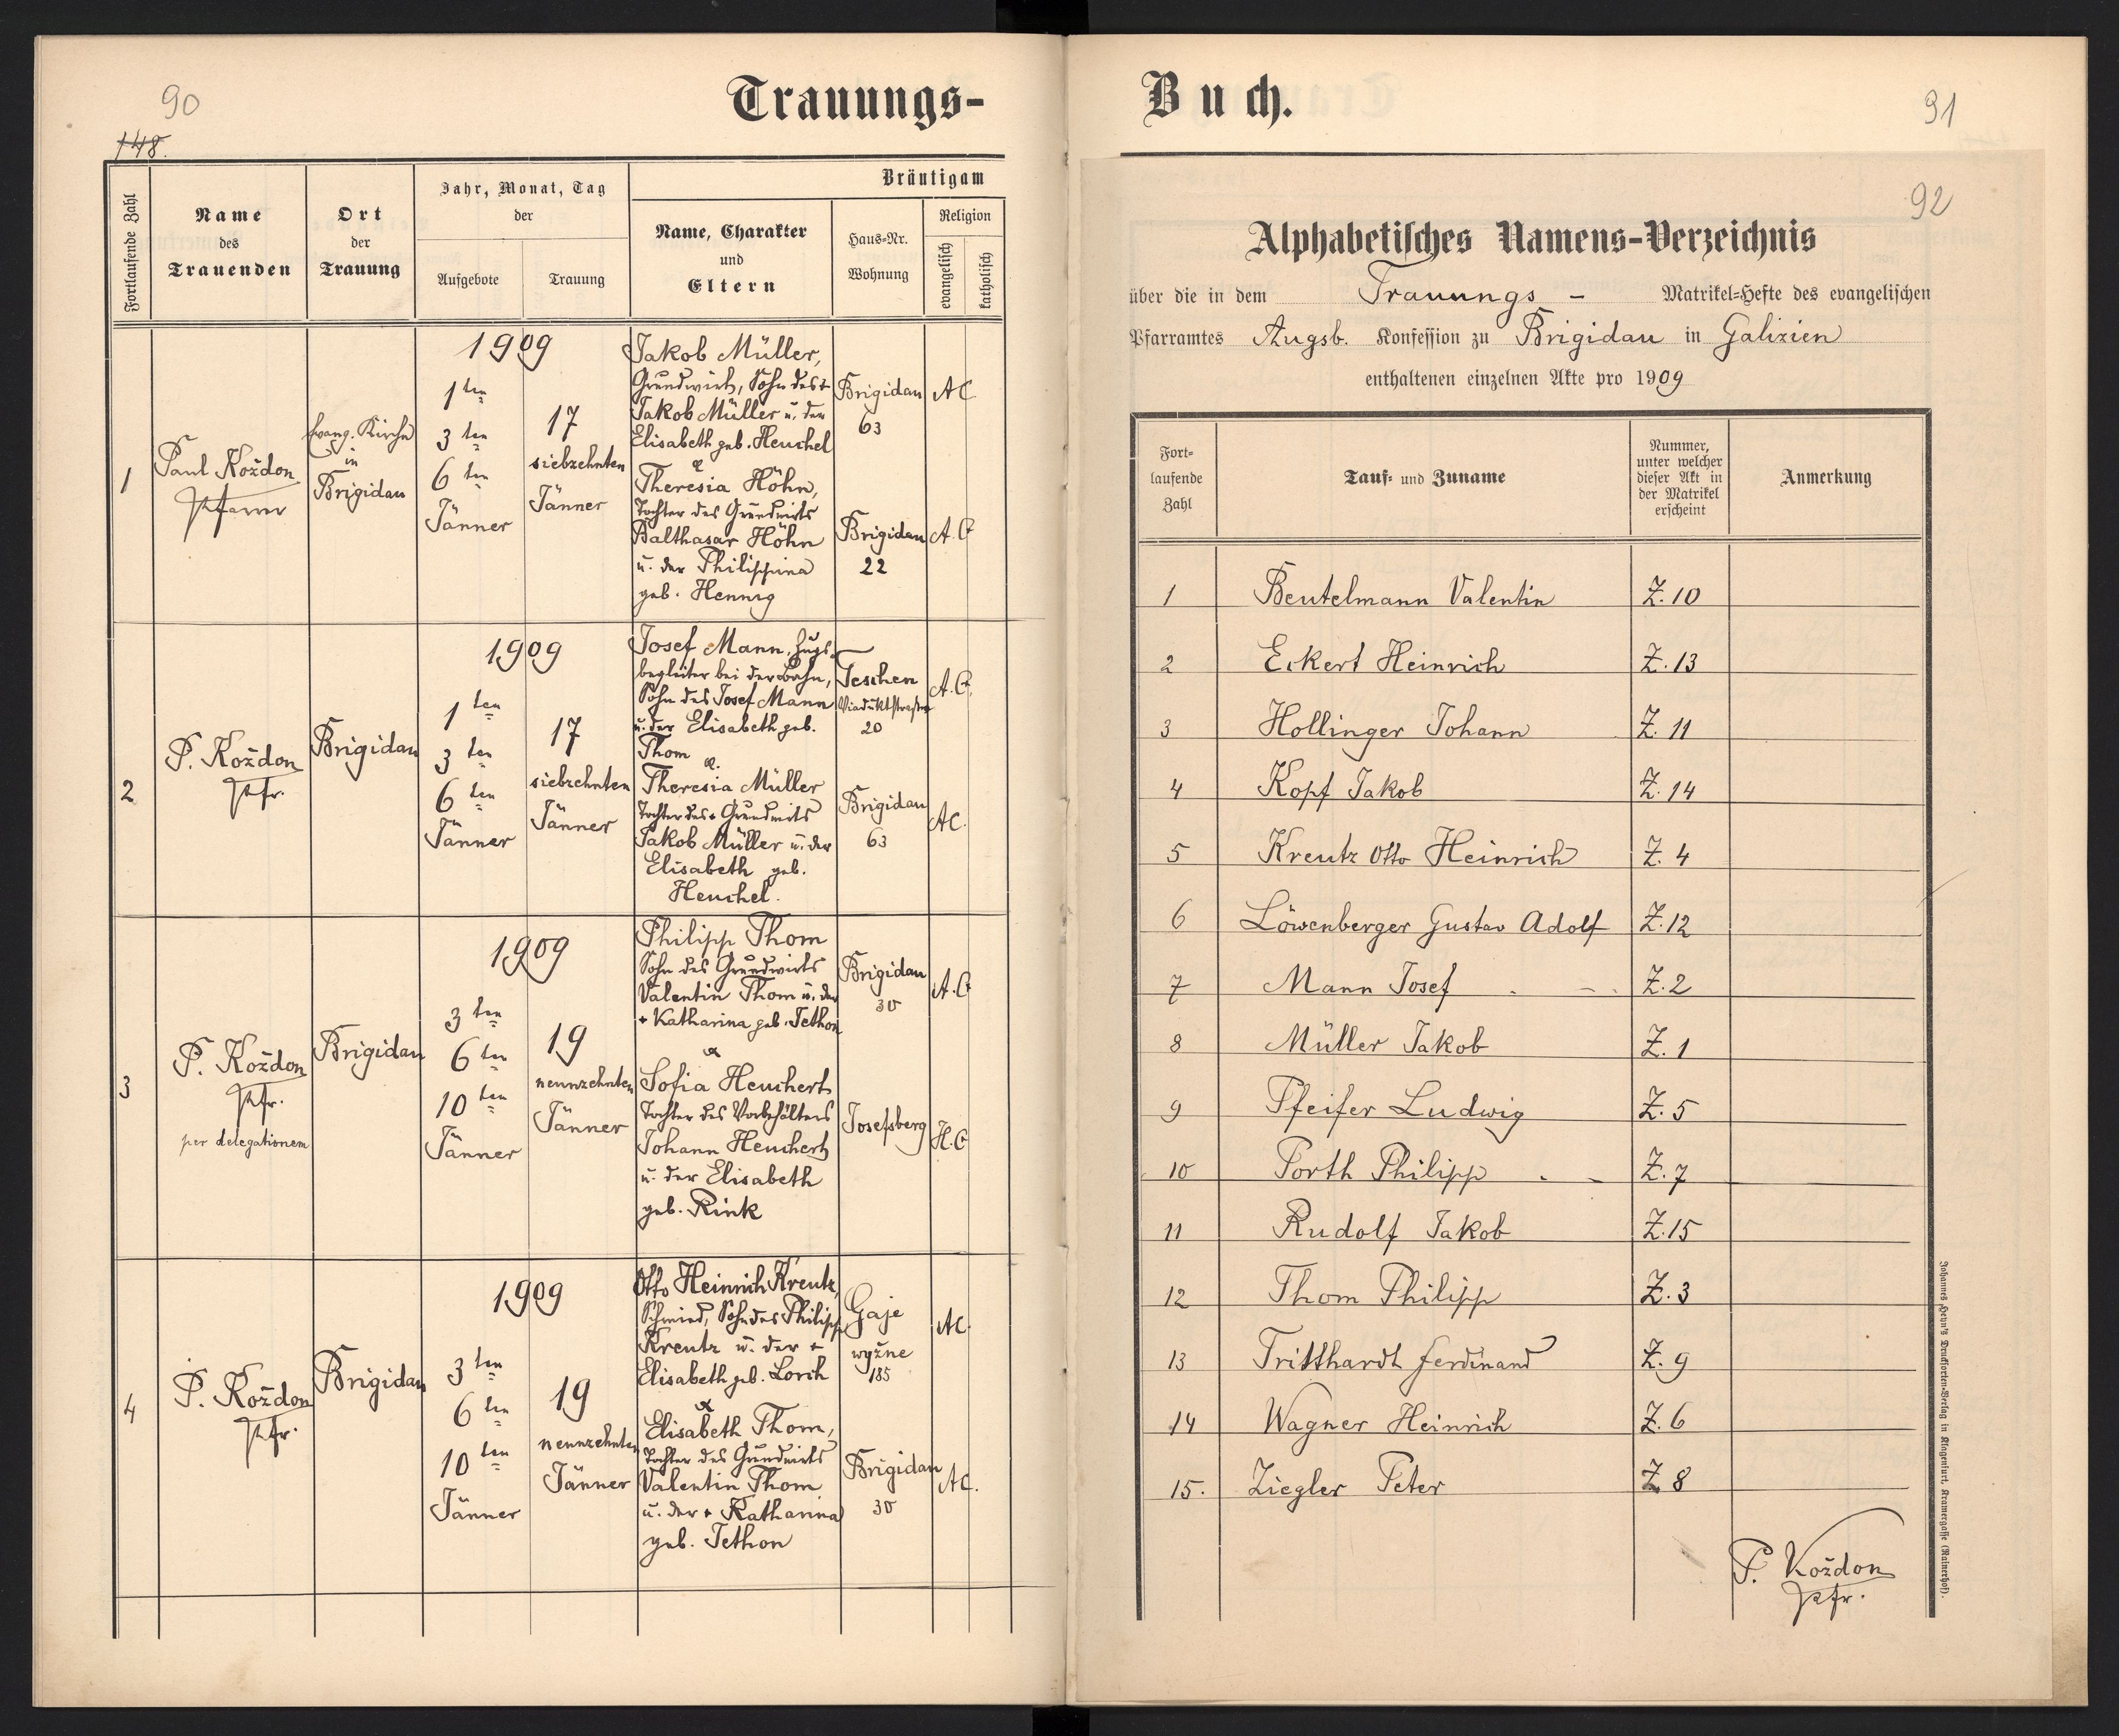 90
148.
Trauungs-
Fortlaufende Zahl
Name
des
Trauenden
Ort
der
Trauung
Jahr, Monat, Tag
der
Aufgebote
Trauung
Bräutigam
Name, Charakter
und
Eltern
Haus-Nr.
Wohnung
Religion
evangelisch
katholisch
1
Paul Kożdon
Pfarrer
Evang. Kirche
in
Brigidau
1909
1ten
3ten
6ten
Jänner
17
siebzehnten
Jänner
Jakob Müller,
Grundwirt, Sohn des +
Jakob Müller u. der
Elisabeth geb. Heuchel
&
Theresia Höhn,
Tochter des Grundwirts
Balthasar Höhn
u. der Philippina
geb. Hennig
Brigidau
63
Brigidau
22
AC
A.C
2
P. Kożdon
Pfr.
Brigidau
1909
1ten
3ten
6ten
Jänner
17
siebzehnten
Jänner
Josef Mann, Zugs-
begleiter bei der Bahn,
Sohn des Josef Mann
u. der Elisabeth geb.
Thom
&.
Theresia Müller
Tochter des + Grundwirts
Jakob Müller u. der
Elisabeth geb.
Heuchel.
Teschen
Viaduktstraße
20
Brigidau
63
A.C.
AC.
3
P. Kożdon
Pfr.
per delegationem
Brigidau
1909
3ten
6ten
10ten
Jänner
19
neunzehnten
Jänner
Philipp Thom
Sohn des Grundwirts
Valentin Thom u. der
+ Katharina geb. Tethon
&
Sofia Heuchert
Tochter des Vorbehälters
Johann Heuchert
u. der Elisabeth
geb. Rink
Brigidau
30
Josefsberg
A.C
H.C
4
P. Kożdon
Pfr.
Brigidau
1909
3ten
6ten
10ten
Jänner
19
neunzehnten
Jänner
Otto Heinrich Kreutz,
Schmied, Sohn des Philipp
Kreutz u. der +
Elisabeth geb. Lorch
&
Elisabeth Thom,
Tochter des Grundwirts
Valentin Thom
u. der + Katharina
geb. Tethon
Gaje
wyżne
185
Brigidau
30
AC
AC.
Buch.
91
92
Alphabetisches Namens-Verzeichnis
über die in dem Trauungs - Matrikel-Hefte des evangelischen
Pfarramtes Augsb. Konfession zu Brigidau in Galizien
enthaltenen einzelnen Akte pro 1909
Fort-
laufende
Zahl
Tauf- und Zuname
Nummer,
unter welcher
dieser Akt in
der Matrikel
erscheint
Anmerkung
1 Beutelmann Valentin Z. 10
2 Eckert Heinrich Z. 13
3 Hollinger Johann Z. 11
4 Kopf Jakob Z. 14
5 Kreutz Otto Heinrich Z. 4
6 Löwenberger Gustav Adolf Z. 12
7 Mann Josef Z. 2
8 Müller Jakob Z. 1
9 Pfeifer Ludwig Z. 5
10 Porth Philipp Z. 7
11 Rudolf Jakob Z. 15
12 Thom Philipp Z. 3
13 Tritthardt Ferdinand Z. 9
14 Wagner Heinrich Z. 6
15. Ziegler Peter Z 8
P. Kożdon
Pfr.
Johannes Heyn's Drucksorten-Verlag in Klagenfurt, Kramergasse (Rainerhof).